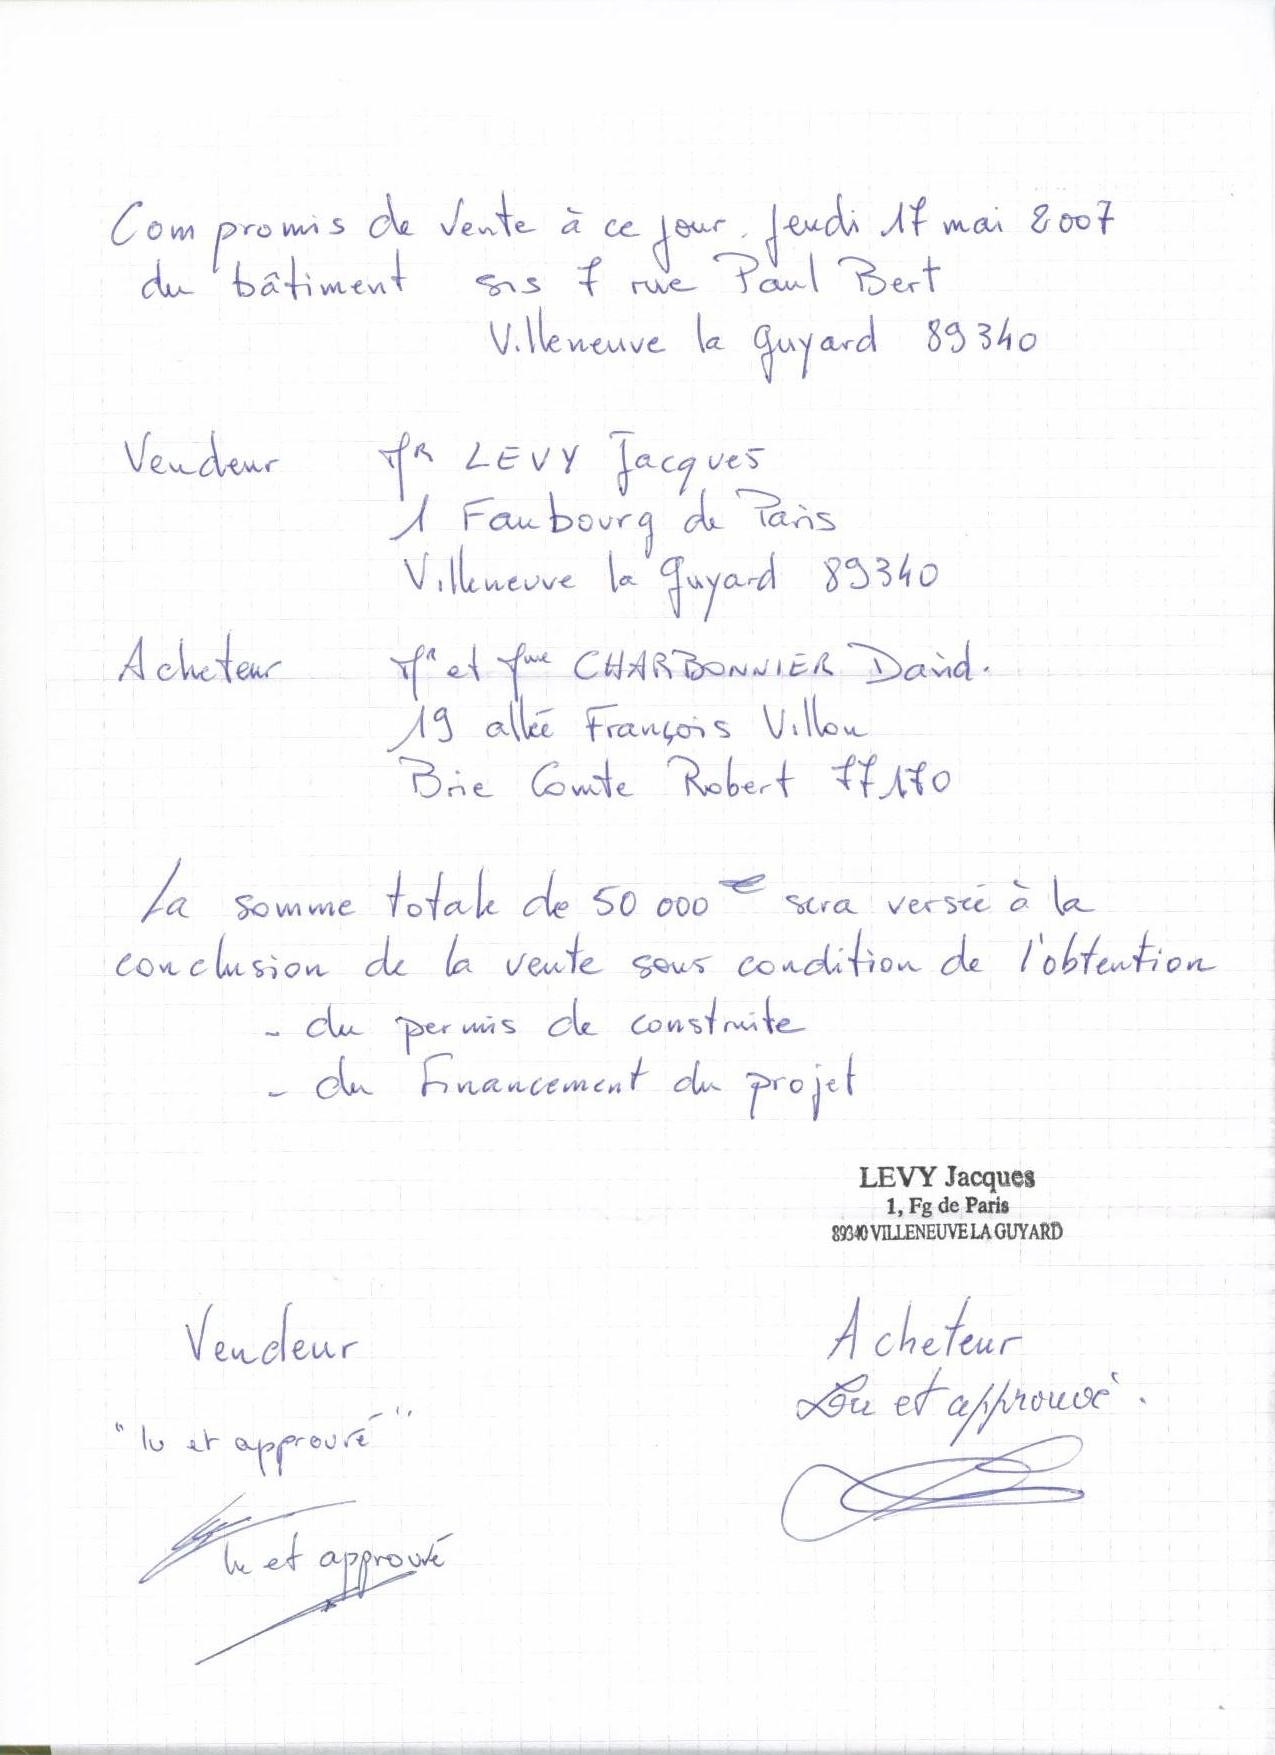 Compromis de vente à ce jour. Jeudi 17 mai 2007
du bâtiment sis 7 rue Paul Bert
Villeneuve la Guyard 89340
Vendeur Mr LEVY Jacques
1 Faubourg de Paris
Villeneuve la Guyard 89340
Acheteur Mr et Mme CHARBONNIER David.
19 allée François Villon
Brie Comte Robert 77170
La somme totale de 50 000 € sera versée à la
conclusion de la vente sous condition de l'obtention
- du permis de construire
- du financement du projet
LEVY Jacques
1, Fg de Paris
89340 VILLENEUVE LA GUYARD
Vendeur
Acheteur
Lu et approuvé.
"lu et approuvé"
lu et approuvé